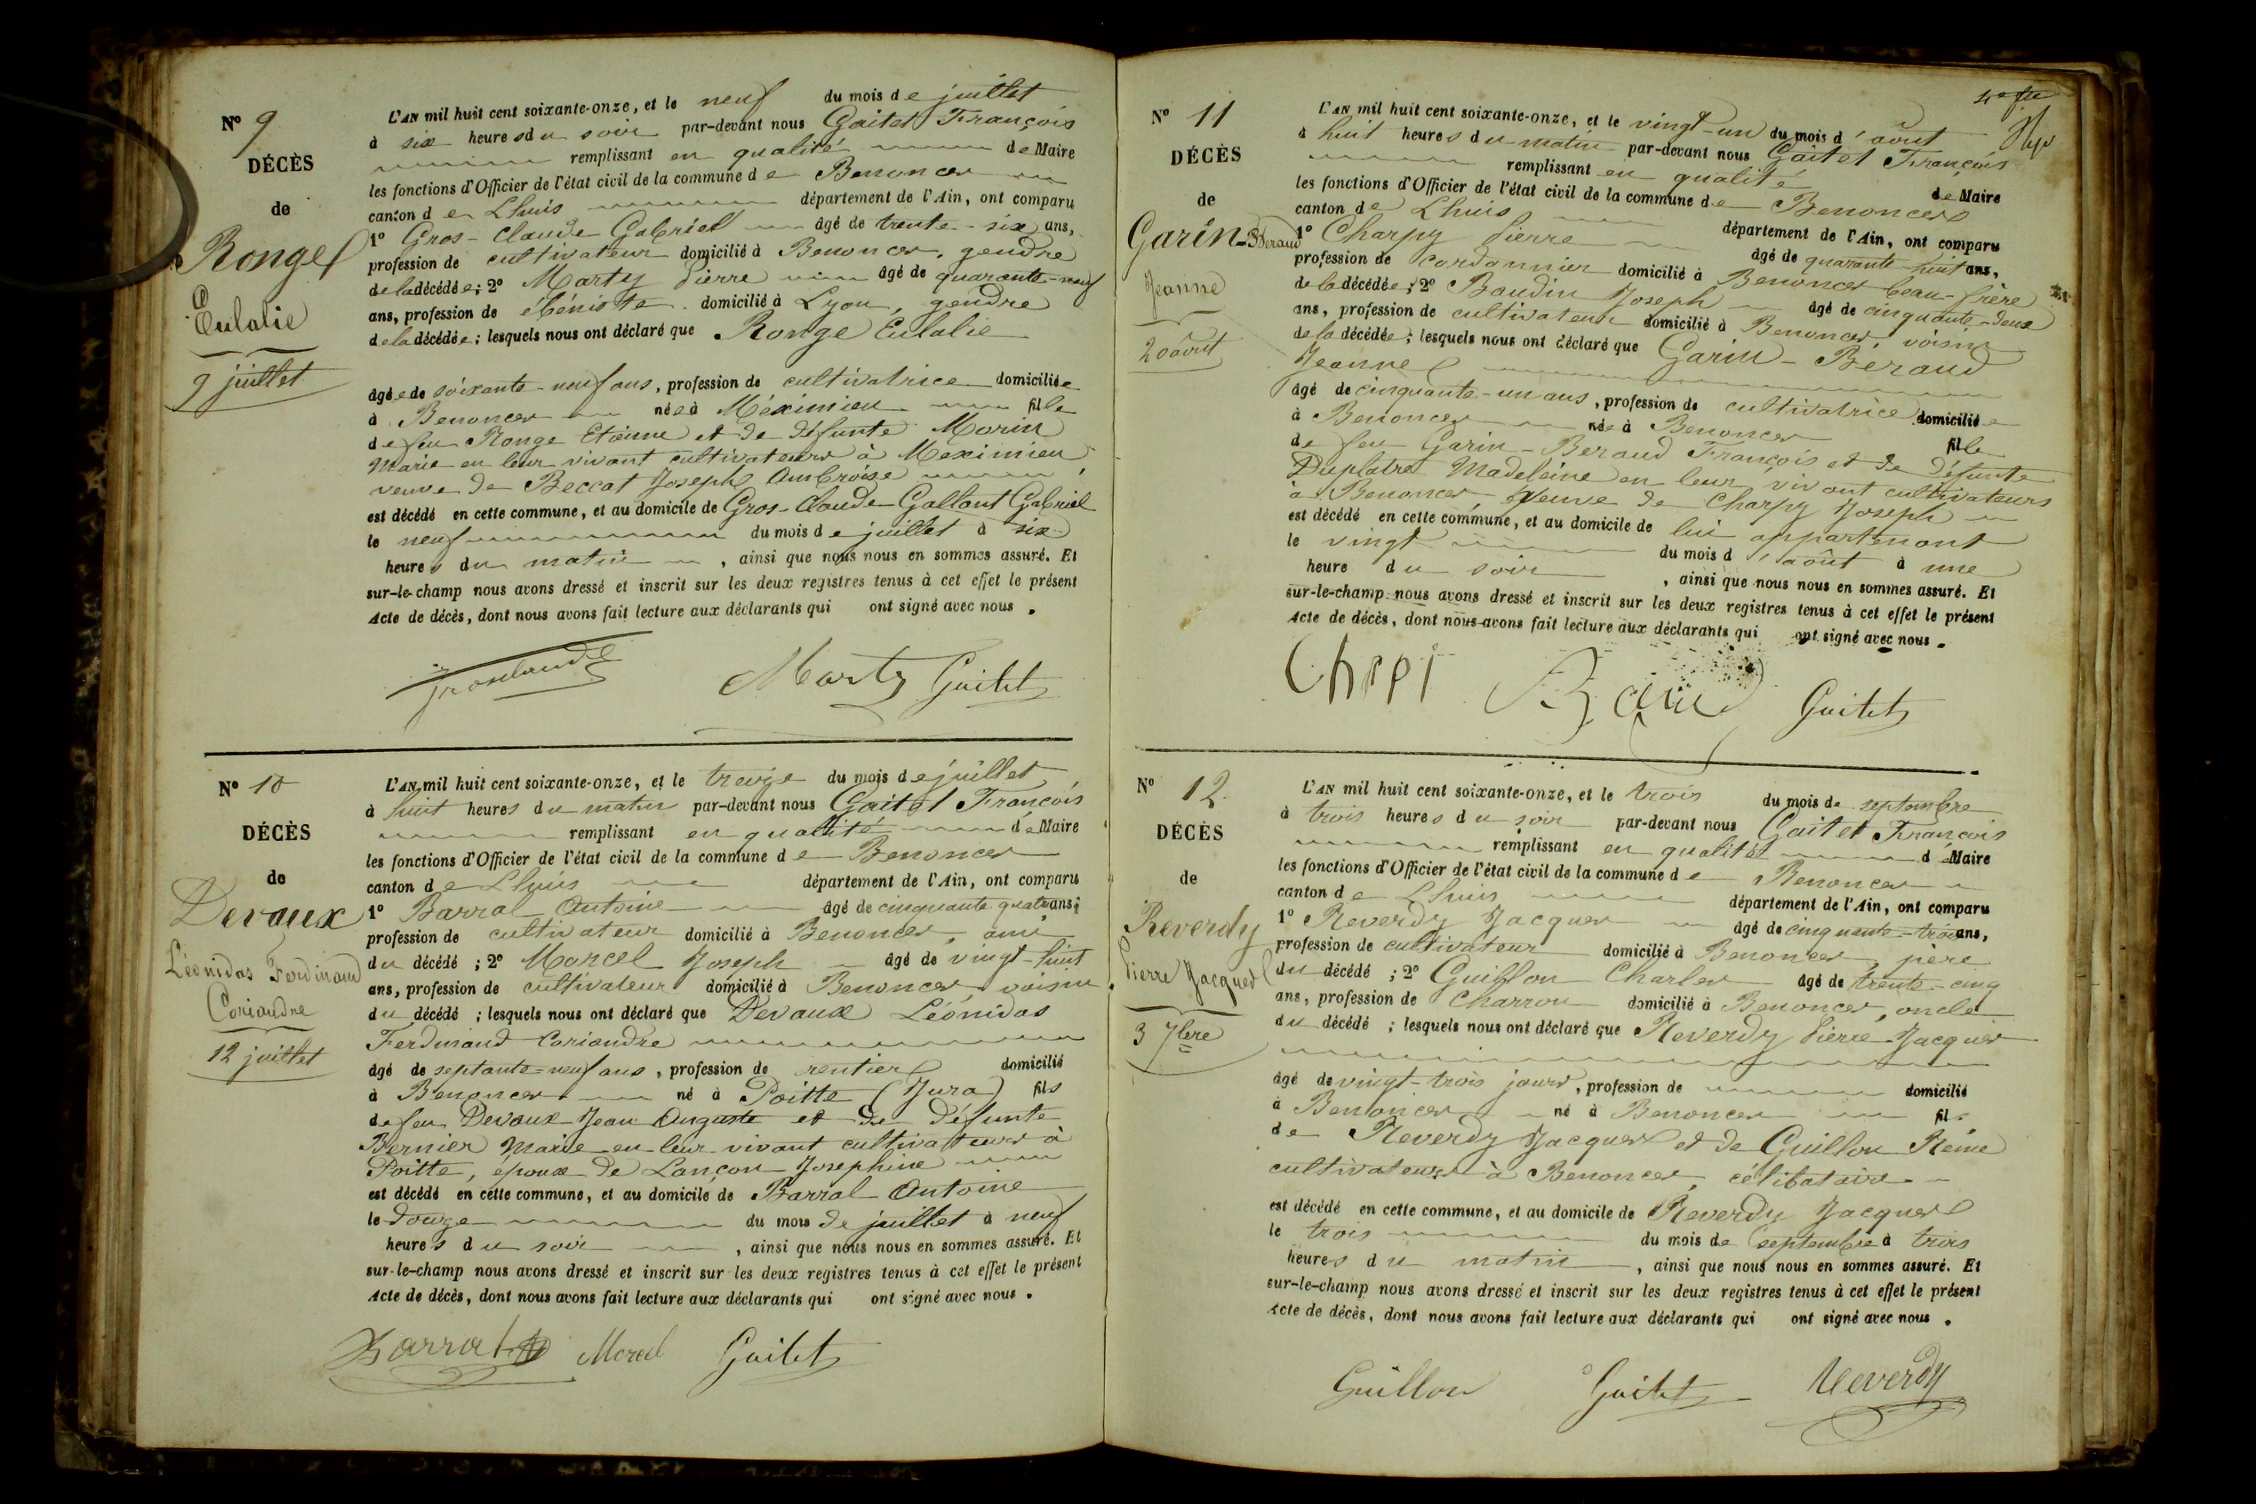 N° 9
DÉCÈS
de
Ronge
Eulalie
9 juillet
L'AN mil huit cent soixante-onze, et le neuf du mois de juillet
à six heures du soir par-devant nous Gaitet François
remplissant en qualité de Maire
les fonctions d'Officier de l'état civil de la commune de Benonces
canton de Lhuis département de l'Ain, ont comparu
1° Gros-Claude Gabriel âgé de trente-six ans,
profession de cultivateur domicilié à Benonces, gendre
de la décédée; 2° Marty Pierre âgé de quarante-neuf
ans, profession de ébéniste domicilié à Lyon, gendre
de la décédée; lesquels nous ont déclaré que Ronge Eulalie
âgée de soixante-neuf ans, profession de cultivatrice domiciliée
à Benonces née à Méximieu fille
de feu Ronge Etienne et de défunte Morin
Marie en leur vivant cultivateurs à Meximieu,
veuve de Beccat Joseph Ambroise
est décédé en cette commune, et au domicile de Gros-Claude Gallant Gabriel
le neuf du mois de juillet à six
heures du matin, ainsi que nous nous en sommes assuré. Et
sur-le-champ nous avons dressé et inscrit sur les deux registres tenus à cet effet le présent
Acte de décès, dont nous avons fait lecture aux déclarants qui ont signé avec nous.
Grosclaude Marty Gaitet
N° 10
DÉCÈS
de
Devaux
Léonidas Ferdinand
Coriandre
12 juillet
L'AN mil huit cent soixante-onze, et le treize du mois de juillet
à huit heures du matin par-devant nous Gaitet François
remplissant en qualité de Maire
les fonctions d'Officier de l'état civil de la commune de Benonces
canton de Lhuis département de l'Ain, ont comparu
1° Barral Antoine âgé de cinquante quatre ans,
profession de cultivateur domicilié à Benonces, ami
du décédé; 2° Marcel Joseph âgé de vingt-huit
ans, profession de cultivateur domicilié à Benonces, voisin
du décédé; lesquels nous ont déclaré que Devaux Léonidas
Ferdinand Coriandre
âgé de septante-neuf ans, profession de rentier domicilié
à Benonces né à Poitte (Jura) fils
de feu Devaux Jean Auguste et de défunte
Bernier Marie en leur vivant cultivateurs à
Poitte, époux de Lançon Josephine
est décédé en cette commune, et au domicile de Barral Antoine
le douze du mois de juillet à neuf
heures du soir, ainsi que nous nous en sommes assuré. Et
sur-le-champ nous avons dressé et inscrit sur les deux registres tenus à cet effet le présent
Acte de décès, dont nous avons fait lecture aux déclarants qui ont signé avec nous.
Barral Marcel Gaitet
N° 11
DÉCÈS
de
Garin-Beraud
Jeanne
20 août
L'AN mil huit cent soixante-onze, et le vingt-un du mois d'août
à huit heures du matin par-devant nous Gaitet François
remplissant en qualité de Maire
les fonctions d'Officier de l'état civil de la commune de Benonces
canton de Lhuis département de l'Ain, ont comparu
1° Charpy Pierre âgé de quarante-huit ans,
profession de cordonnier domicilié à Benonces beau-frère
de la décédée; 2° Baudin Joseph âgé de cinquante-deux
ans, profession de cultivateur domicilié à Benonces, voisin
de la décédée; lesquels nous ont déclaré que Garin-Beraud
Jeanne
âgé de cinquante-un ans, profession de cultivatrice domiciliée
à Benonces née à Benonces fille
de feu Garin-Beraud François et de défunte
Duplatre Madeleine en leur vivant cultivateurs
à Benonces veuve de Charpy Joseph
est décédé en cette commune, et au domicile de lui appartenant
le vingt du mois d'août à une
heure du soir, ainsi que nous nous en sommes assuré. Et
sur-le-champ nous avons dressé et inscrit sur les deux registres tenus à cet effet le présent
Acte de décès, dont nous avons fait lecture aux déclarants qui ont signé avec nous.
Gaitet
N° 12
DÉCÈS
de
Reverdy
Pierre Jacques
3 7bre
L'AN mil huit cent soixante-onze, et le trois du mois de septembre
à trois heures du soir par-devant nous Gaitet François
remplissant en qualité de Maire
les fonctions d'Officier de l'état civil de la commune de Benonces
canton de Lhuis département de l'Ain, ont comparu
1° Reverdy Jacques âgé de cinquante-trois ans,
profession de cultivateur domicilié à Benonces père
du décédé; 2° Guillon Charles âgé de trente-cinq
ans, profession de charron domicilié à Benonces, oncle
du décédé; lesquels nous ont déclaré que Reverdy Pierre Jacques
âgé de vingt-trois jours, profession de domicilié
à Benonces né à Benonces fils
de Reverdy Jacques et de Guillon Reine
cultivateurs à Benonces, célibataire
est décédé en cette commune, et au domicile de Reverdy Jacques
le trois du mois de septembre à trois
heures du matin, ainsi que nous nous en sommes assuré. Et
sur-le-champ nous avons dressé et inscrit sur les deux registres tenus à cet effet le présent
Acte de décès, dont nous avons fait lecture aux déclarants qui ont signé avec nous.
Guillon Gaitet Reverdy